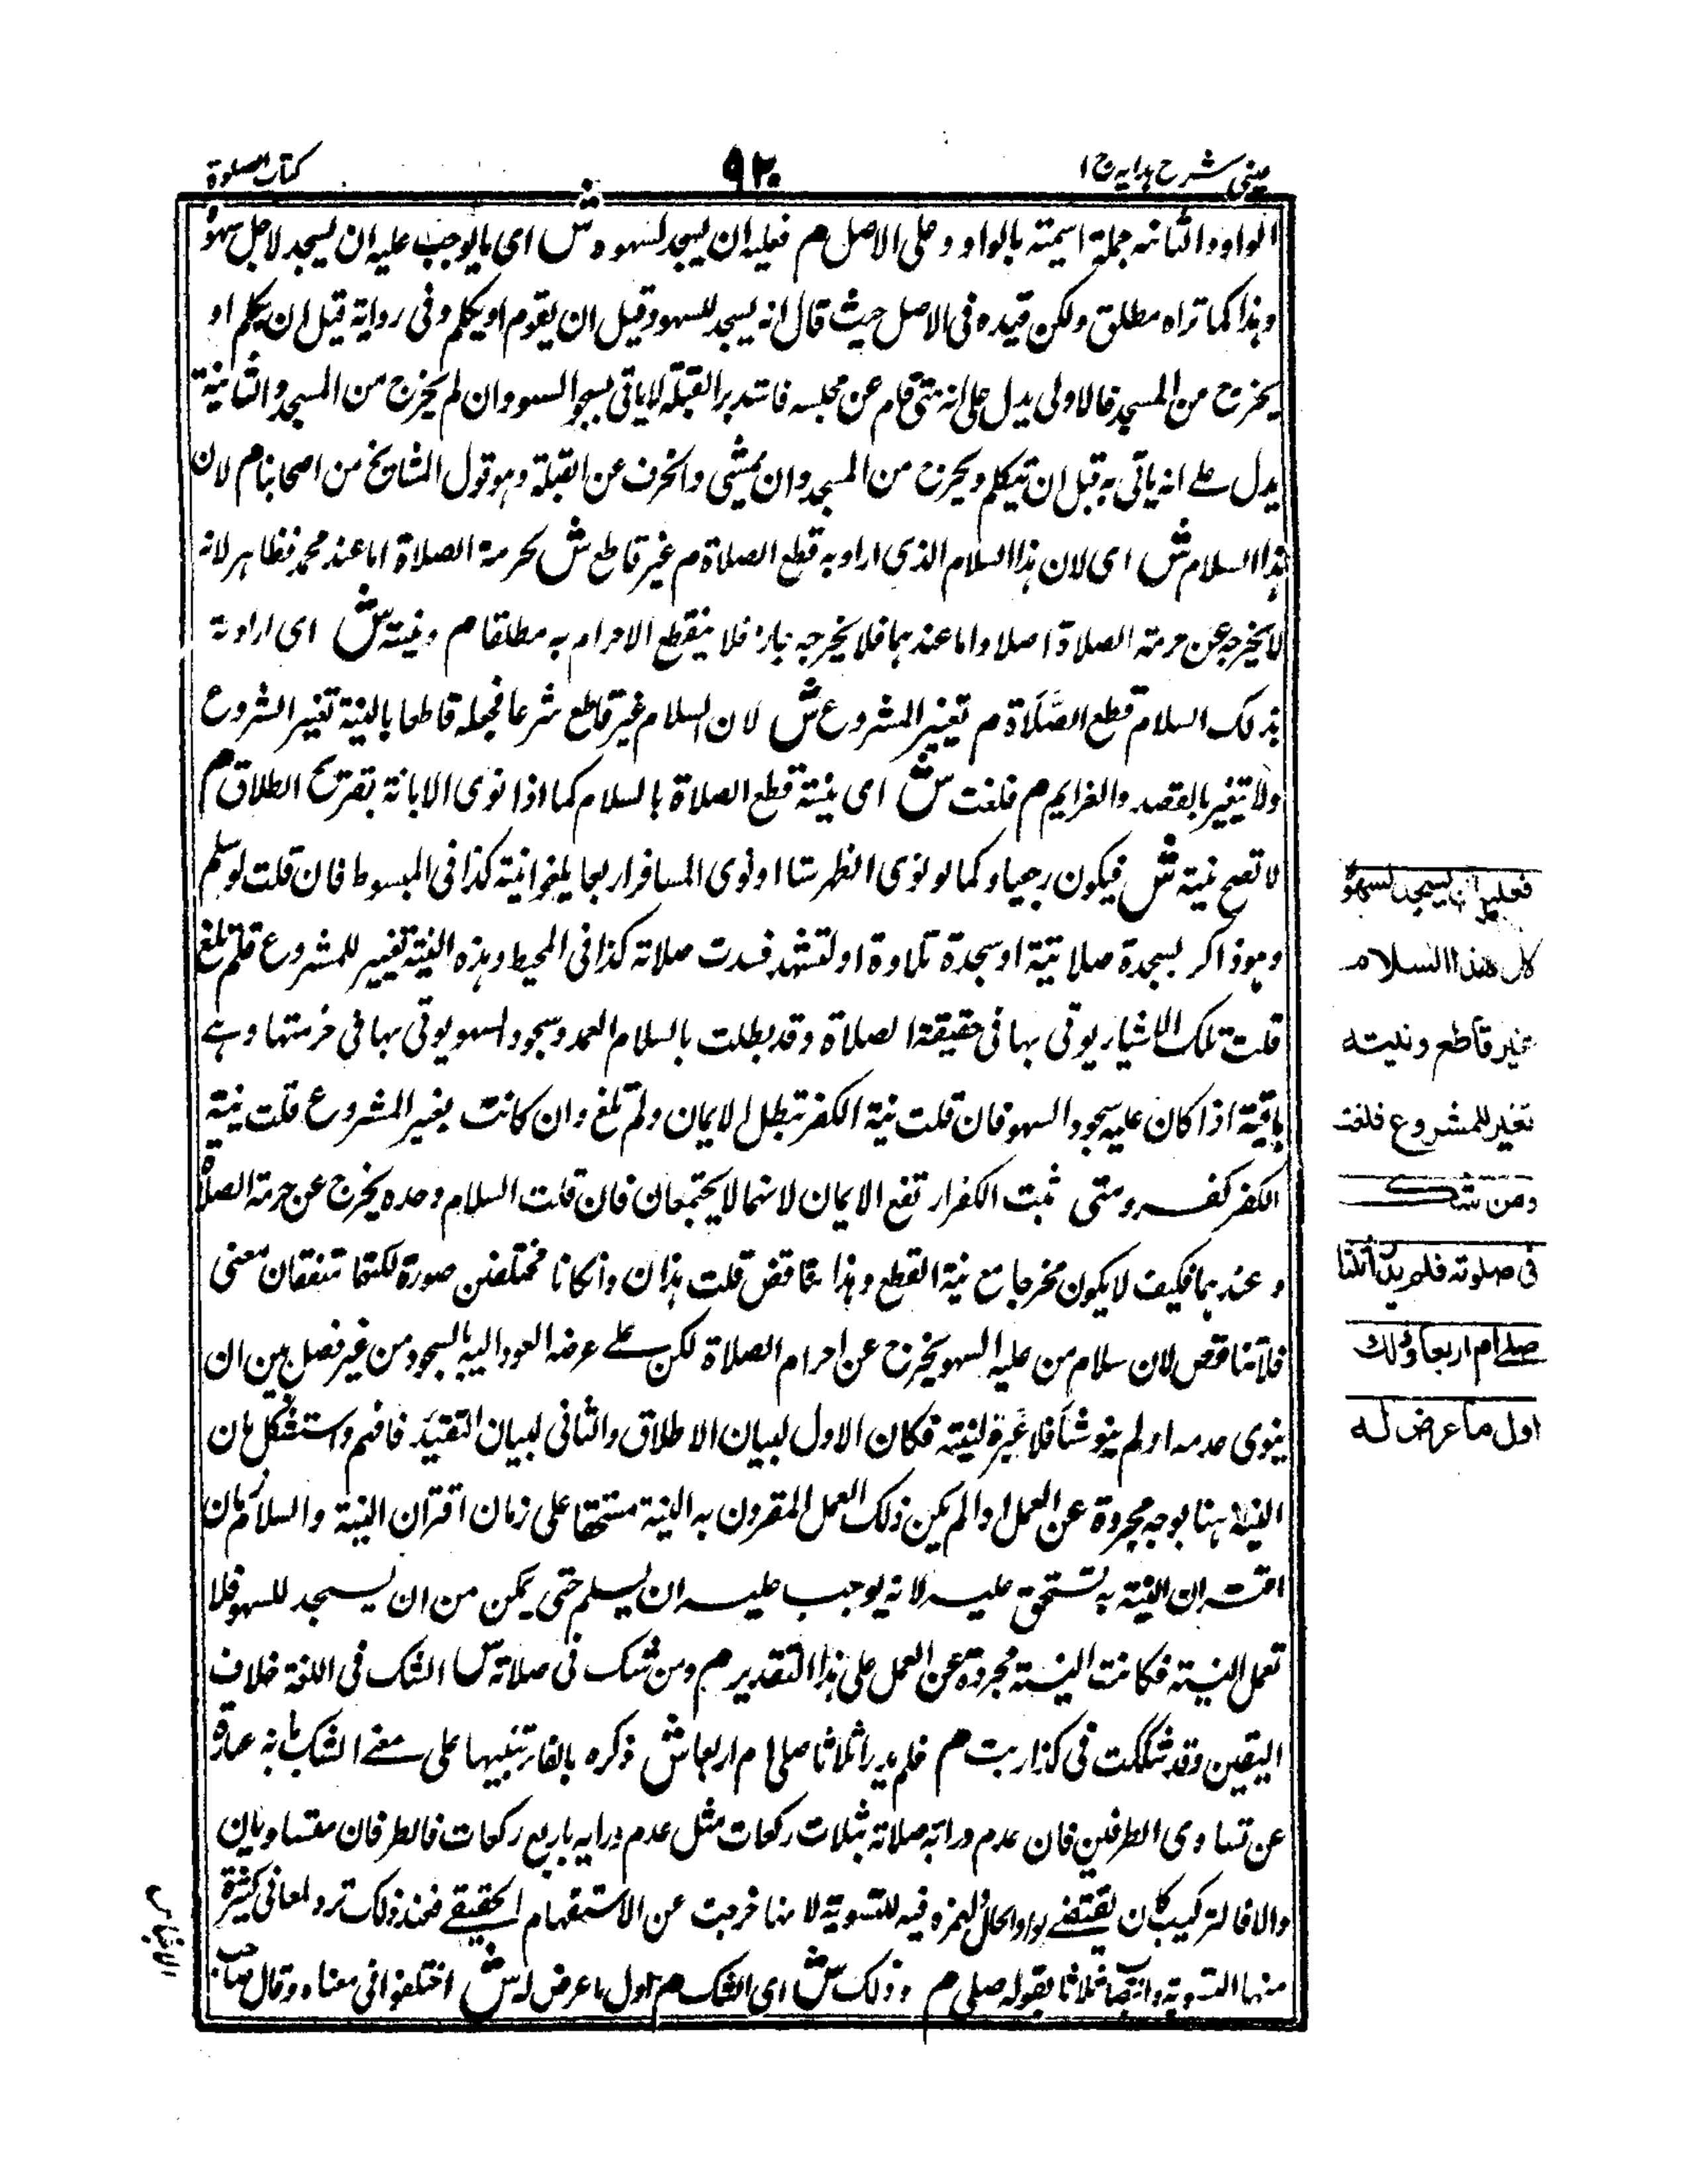 عینی شرح ہدایہ ج ا
٩٢٠
کتاب الصلوة
الواو والثانیه جملة اسمیته بالواو وعلی الاصل م فعلیه ان یسجد لسهوه ش ای ما یوجب علیه ان یسجد لاجل سهوه
وهذا کما تراه مطلق ولکن قیده فی الاصل حیث قال انه یسجد للسهو قبل ان یقوم او یتکلم وفی روایة قبل ان یتکلم او
یخرج من المسجد فالاولی یدل علی انه متی قام عن مجلسه فاستدبر القبلة لا یاتی بسجود السهو وان لم یخرج من المسجد والثانیة
یدل علی انه یاتی به قبل ان یتکلم ویخرج من المسجد وان یمشی وانحرف عن القبلة وهو قول المشایخ من اصحابنا م لان
هذا السلام ش ای لان هذا السلام الذی اراد به قطع الصلاة م غیر قاطع ش لحرمة الصلاة اما عند محمد فظاهر لانه
لا یخرجه عن حرمة الصلاة اصلا واما عندهما فلا یخرجه فلا ینقطع الاحرام به مطلقا م ونیته ش ای ارادته
بذلک السلام قطع الصلاة م تغییر المشروع ش لان السلام غیر قاطع شرعا فجعله قاطعا بالنیة تغییر المشروع
ولا تتغیر بالقصد والغرایم م فلغت ش ای نیته قطع الصلاة بالسلام کما اذا نوی الابانة بصریح الطلاق م
لا تصح نیته ش فیکون رجعیا وکما لو نوی الظهر ستا او نوی المسافر اربعا یلغوا نیته کذا فی المبسوط فان قلت لو سلم
وهو ذاکر لسجدة صلاتیة او سجدة تلاوة او لتشهد فسدت صلاته کذا فی المحیط وهذه النیة تغییر للمشروع فلم تلغ
قلت تلک الاشیاء یوتی بها فی حقیقة الصلاة وقد بطلت بالسلام العمد وسجود السهو یوتی بها فی حرمتها وهے
باقیة اذا کان علیه سجود السهو فان قلت نیة الکفر تبطل الایمان ولم تلغ وان کانت بغیر المشروع قلت نیة
الکفر کفر ومتی ثبت الکفر ارتفع الایمان لانهما لا یجتمعان فان قلت السلام وحده یخرج عن حرمة الصلاة
وعندهما فکیف لا یکون مخرجا مع نیة القطع وهذا تناقض قلت هذان وان کانا مختلفین صورة لکنهما متفقان معنی
فلا تناقض لان سلام من علیه السهو یخرج عن احرام الصلاة لکن علی عرضه العود الیه بالسجود من غیر فصل بین ان
ینوی عدمه او لم ینو شیئا فلا عبرة لنیته فکان الاول لبیان الاطلاق والثانی لبیان التقیید فافهم واستشکل بان
النیة هنا بوجه مجردة عن العمل اذا لم یکن ذلک العمل المقرون به النیة مستحقا علی زمان اقتران النیة والسلام زمان
اقتران النیة به مستحق علیه لانه یوجب علیه ان یسلم حتی یمکن من ان یسجد للسهو فلا
تعمل النیة فکانت النیة مجردة عن العمل علی هذا التقدیر م ومن شک فی صلاته ش الشک فی اللغة خلاف
الیقین وقد شککت فی کذا ریبت م فلم یدر اثلاثا صلی ام اربعا ش ذکره بالفاء تنبیها علی معنے الشک بانه عبارة
عن تساوی الطرفین فان عدم درایة صلاته بثلاث رکعات مثل عدم درایه باربع رکعات فالطرفان متساویان
والا فالترکیب کان یقتضے بواو الحال الهمزه فیه للتسویة لانها خرجت عن الاستفهام الحقیقے فعند ذلک ترد لمعانی کثیرة
منها التسویة وانتصاب ثلاثا بقوله صلی م وذلک ش ای الشک م اول ما عرض له ش اختلفوا فی معناه وقال صاحب
فعلیه ان یسجد لسهوه
لان هذا السلام
غیر قاطع ونیته
تغیر للمشروع فلغت
ومن شک
فی صلوته فلم یدر اثلثا
صلے ام اربعا وذلك
اول ما عرض له